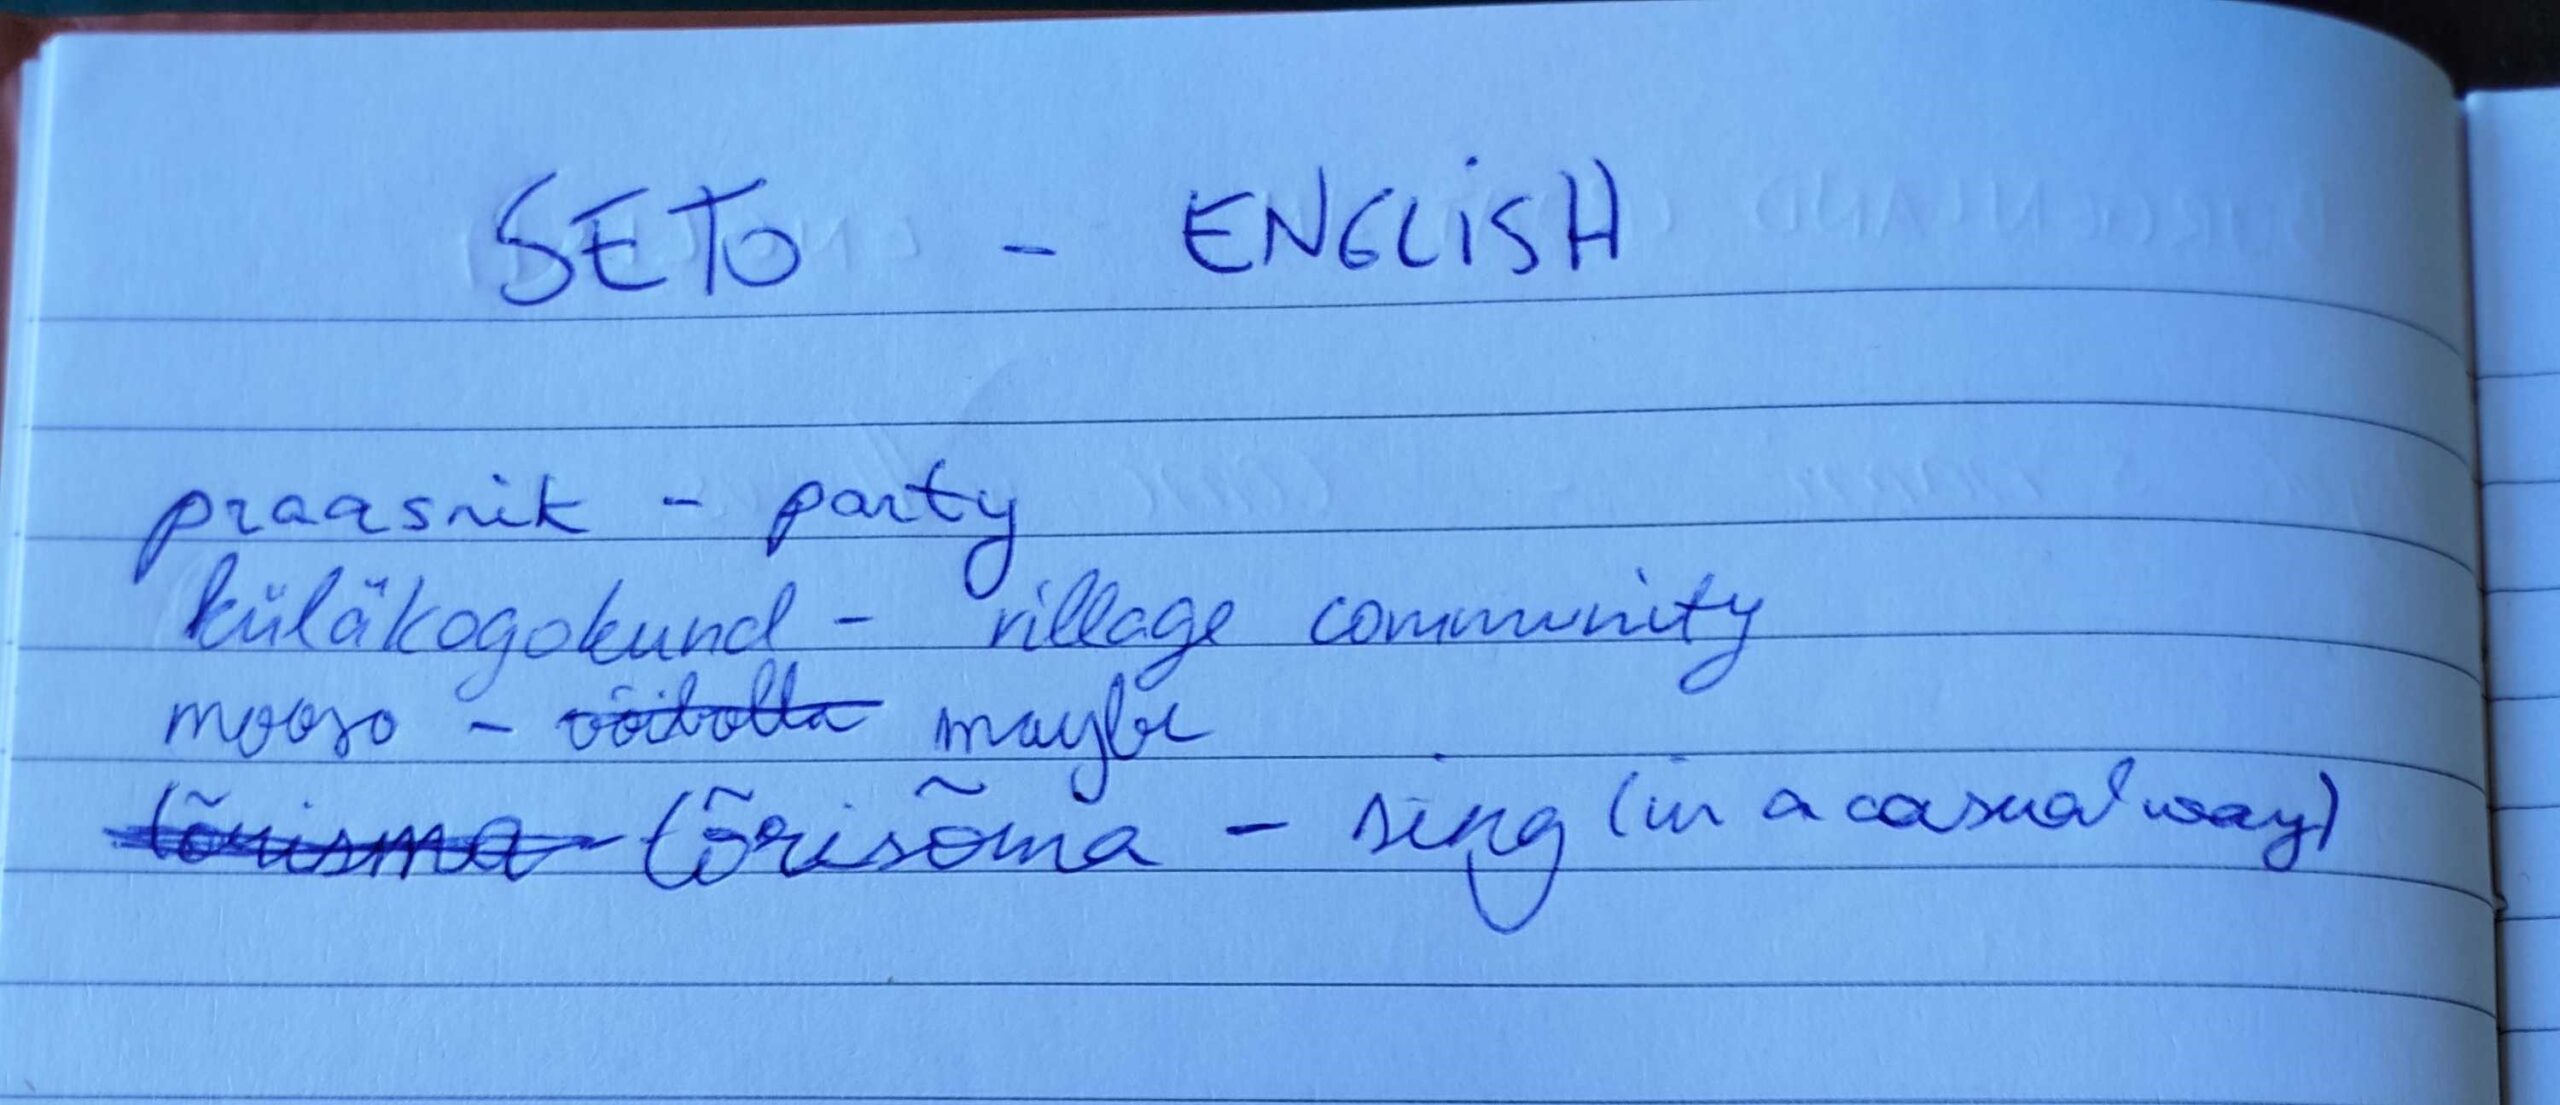 SETO - ENGLISH
praasnik - party
küläkogokund - village community
mooso - võibolla maybe
lõrisma lõrisõma - sing (in a casual way)